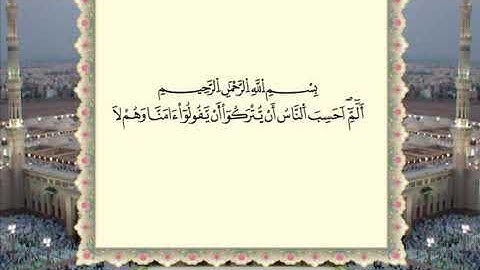 بِسْمِ اِ۬للَّهِ اِ۬لرَّحْمَٰنِ اِ۬لرَّحِيمِ
أَلَٓمِّٓۖ أَحَسِبَ اَ۬لنَّاسُ أَنْ يُّتْرَكُوٓاْ أَنْ يَّقُولُوٓاْ ءَامَنَّا وَهُمْ لَا